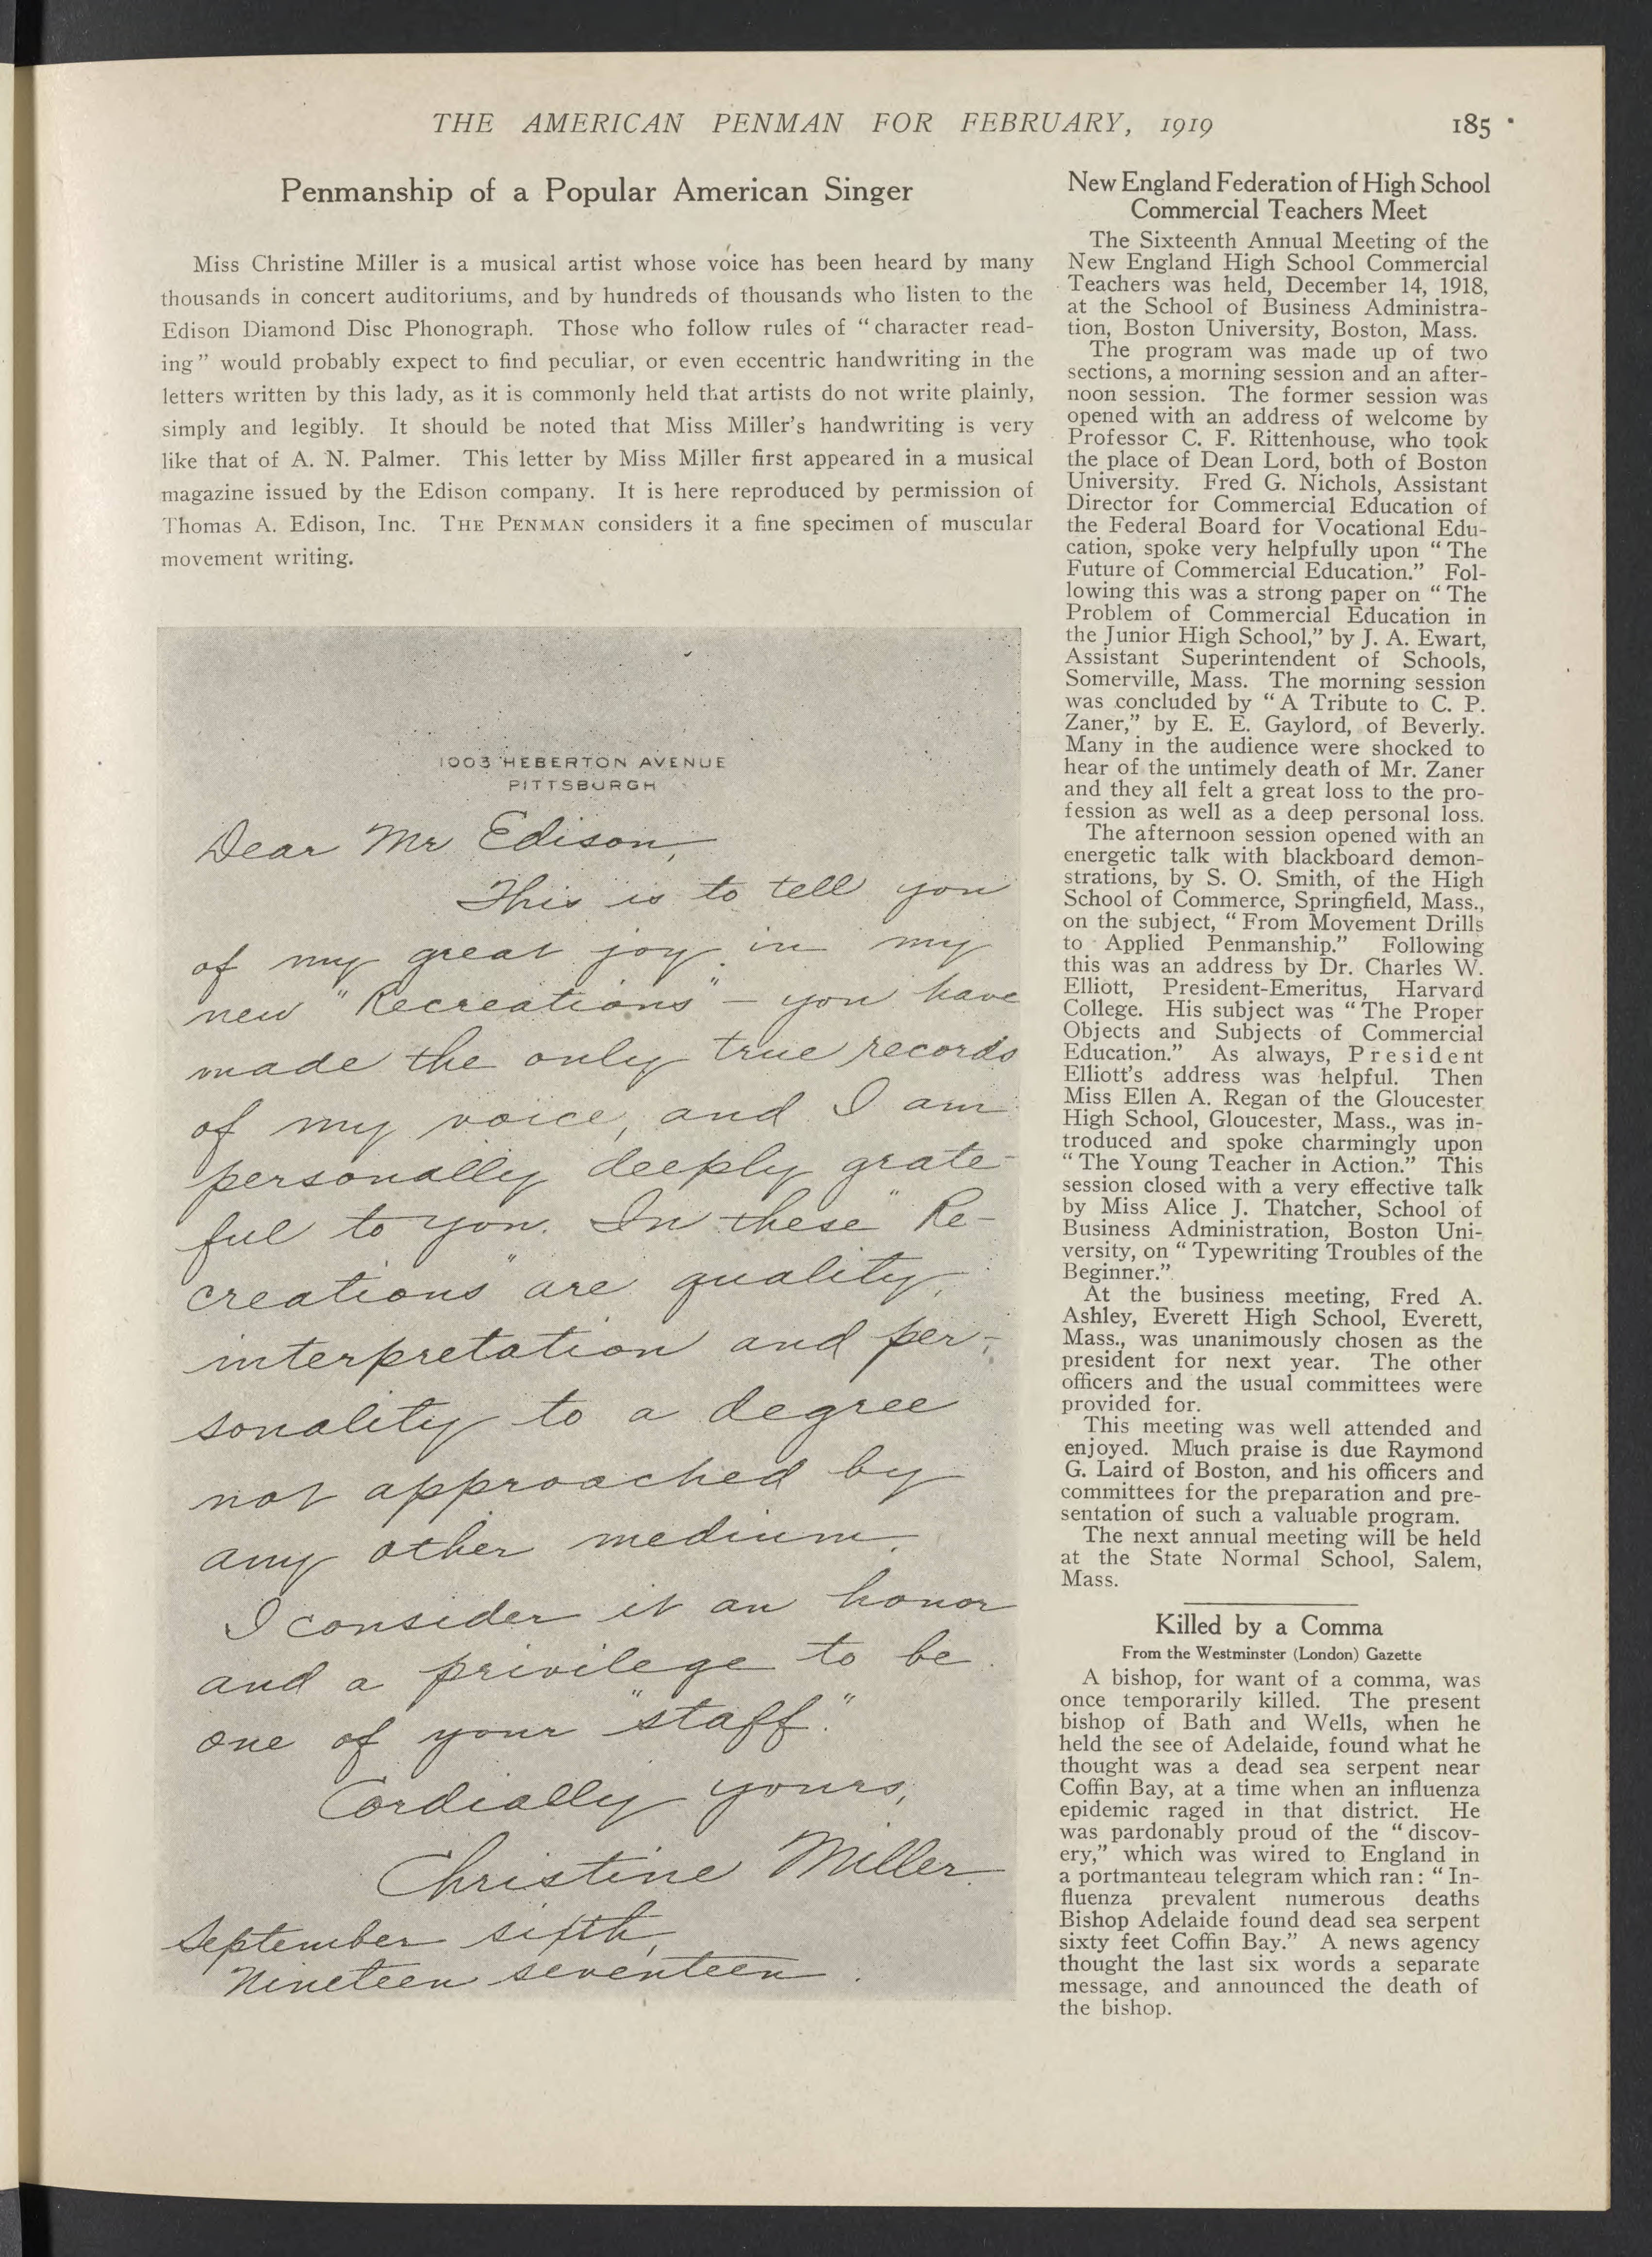 THE AMERICAN PENMAN FOR FEBRUARY, 1919
185
Penmanship of a Popular American Singer
Miss Christine Miller is a musical artist whose voice has been heard by many
thousands in concert auditoriums, and by hundreds of thousands who listen to the
Edison Diamond Disc Phonograph. Those who follow rules of “character read-
ing” would probably expect to find peculiar, or even eccentric handwriting in the
letters written by this lady, as it is commonly held that artists do not write plainly,
simply and legibly. It should be noted that Miss Miller's handwriting is very
like that of A. N. Palmer. This letter by Miss Miller first appeared in a musical
magazine issued by the Edison company. It is here reproduced by permission of
Thomas A. Edison, Inc. THE PENMAN considers it a fine specimen of muscular
movement writing.
1003 HEBERTON AVENUE
PITTSBURGH
Dear Mr Edison,
This is to tell you
of my great joy in my
new "Recreations" — you have
made the only true records
of my voice, and I am
personally deeply grate-
ful to you. In these "Re-
creations" are quality,
interpretation and per-
sonality to a degree
not approached by
any other medium.
I consider it an honor
and a privilege to be
one of your "staff."
Cordially yours,
Christine Miller.
September sixth,
Nineteen seventeen.
New England Federation of High School
Commercial Teachers Meet
The Sixteenth Annual Meeting of the
New England High School Commercial
Teachers was held, December 14, 1918,
at the School of Business Administra-
tion, Boston University, Boston, Mass.
The program was made up of two
sections, a morning session and an after-
noon session. The former session was
opened with an address of welcome by
Professor C. F. Rittenhouse, who took
the place of Dean Lord, both of Boston
University. Fred G. Nichols, Assistant
Director for Commercial Education of
the Federal Board for Vocational Edu-
cation, spoke very helpfully upon “The
Future of Commercial Education.” Fol-
lowing this was a strong paper on “The
Problem of Commercial Education in
the Junior High School,” by J. A. Ewart,
Assistant Superintendent of Schools,
Somerville, Mass. The morning session
was concluded by “A Tribute to C. P.
Zaner,” by E. E. Gaylord, of Beverly.
Many in the audience were shocked to
hear of the untimely death of Mr. Zaner
and they all felt a great loss to the pro-
fession as well as a deep personal loss.
The afternoon session opened with an
energetic talk with blackboard demon-
strations, by S. O. Smith, of the High
School of Commerce, Springfield, Mass.,
on the subject, “From Movement Drills
to Applied Penmanship.” Following
this was an address by Dr. Charles W.
Elliott, President-Emeritus, Harvard
College. His subject was “The Proper
Objects and Subjects of Commercial
Education.” As always, President
Elliott's address was helpful. Then
Miss Ellen A. Regan of the Gloucester
High School, Gloucester, Mass., was in-
troduced and spoke charmingly upon
“The Young Teacher in Action.” This
session closed with a very effective talk
by Miss Alice J. Thatcher, School of
Business Administration, Boston Uni-
versity, on “Typewriting Troubles of the
Beginner.”
At the business meeting, Fred A.
Ashley, Everett High School, Everett,
Mass., was unanimously chosen as the
president for next year. The other
officers and the usual committees were
provided for.
This meeting was well attended and
enjoyed. Much praise is due Raymond
G. Laird of Boston, and his officers and
committees for the preparation and pre-
sentation of such a valuable program.
The next annual meeting will be held
at the State Normal School, Salem,
Mass.
Killed by a Comma
From the Westminster (London) Gazette
A bishop, for want of a comma, was
once temporarily killed. The present
bishop of Bath and Wells, when he
held the see of Adelaide, found what he
thought was a dead sea serpent near
Coffin Bay, at a time when an influenza
epidemic raged in that district. He
was pardonably proud of the “discov-
ery,” which was wired to England in
a portmanteau telegram which ran: “In-
fluenza prevalent numerous deaths
Bishop Adelaide found dead sea serpent
sixty feet Coffin Bay.” A news agency
thought the last six words a separate
message, and announced the death of
the bishop.